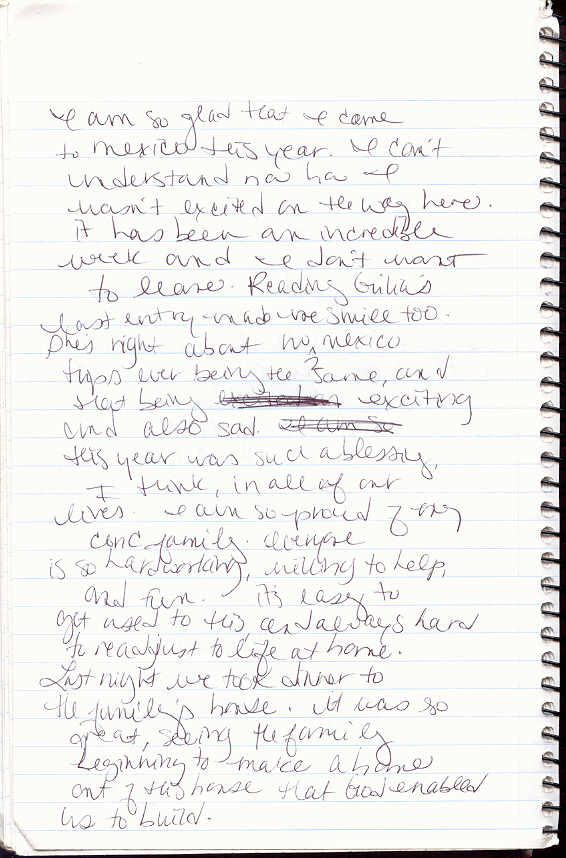 I am so glad that I came
to mexico this year. I can't
understand now how I
wasn't excited on the way here.
it has been an incredible
week and I don't want
to leave. Reading
last entry made me smile too.
She's right about no mexico
trips ever being the same, and
that being exciting
and also sad. I am so
this year was such a blessing,
I think, in all of our
lives. I am so proud of my
family. everyone
is so hardworking, willing to help,
and fun. it's easy to
get used to this and always hard
to readjust to life at home.
Last night we took dinner to
the family's house. it was so
great, seeing the family
beginning to make a home
out of this house that God enabled
us to build.